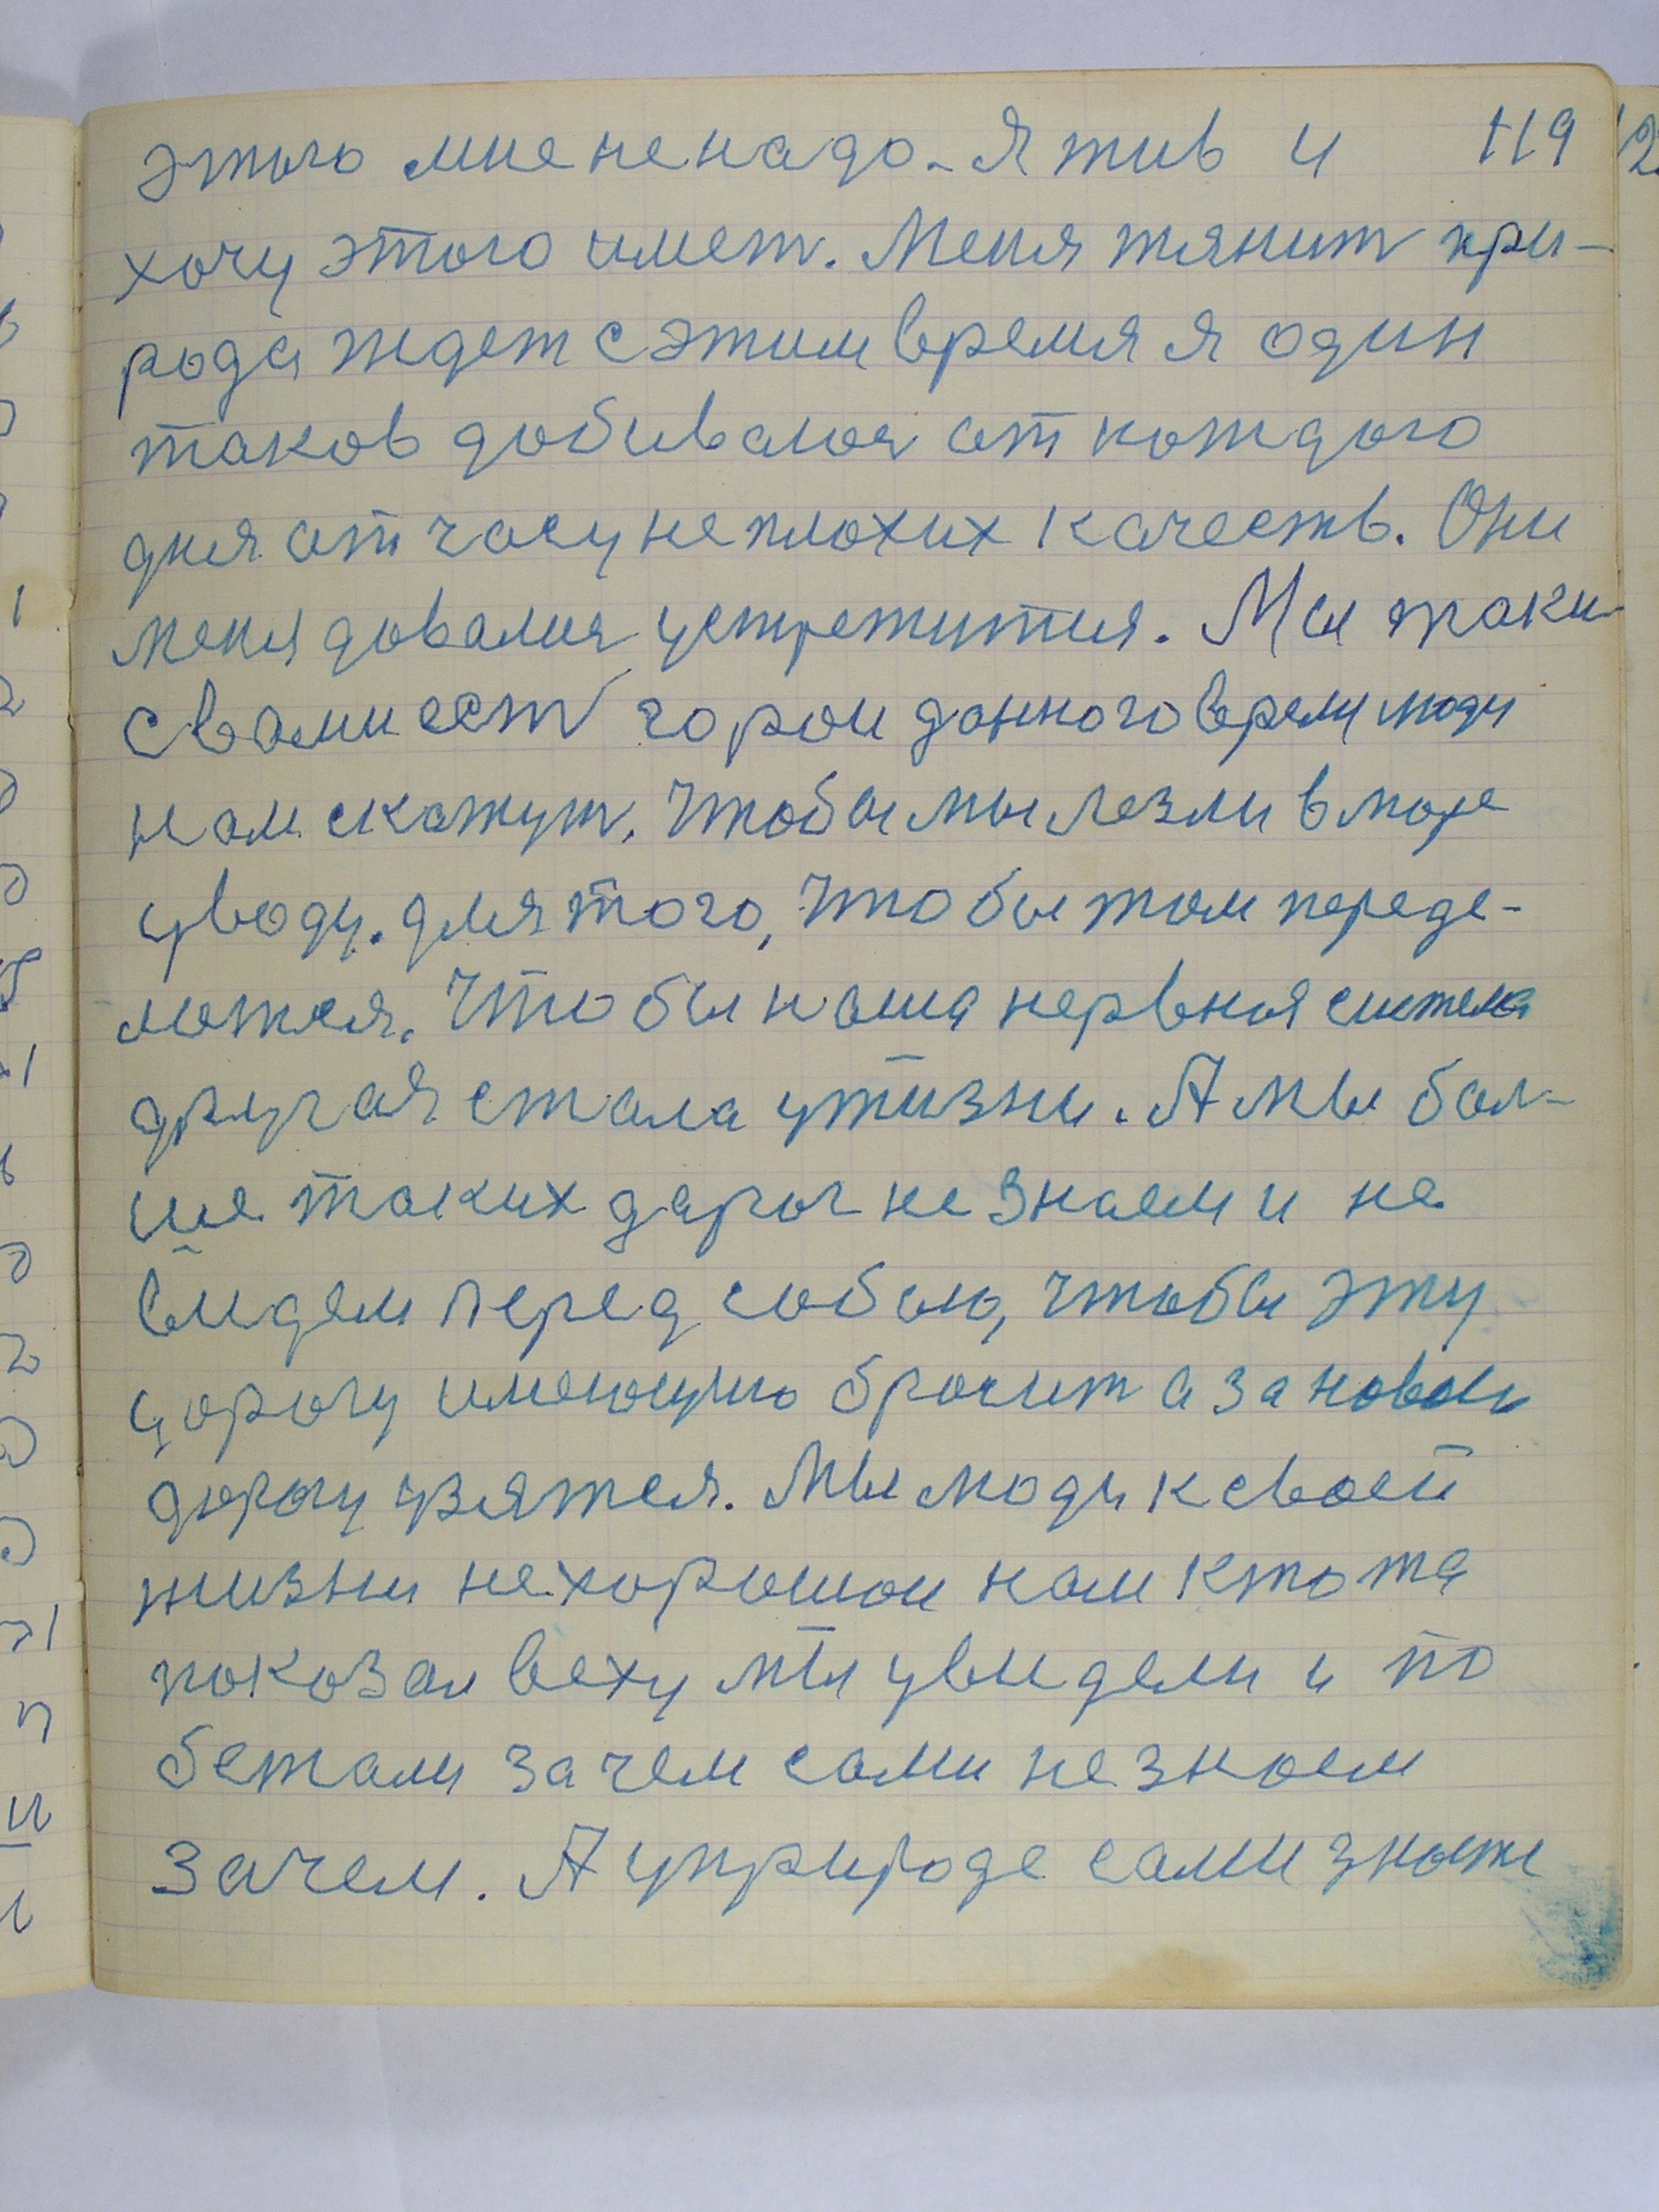 этого мне не надо. Я жив и 119
хочу этого имет. Меня тянит при-
рода ждет с этим время я один
таков добивался от кождого
дня от часу не плохих качеств. Они
меня довалис устрежится. Мы таки
с вами ест горои данного время люди
нам скажут. Чтобы мы лезли в
уводу. для того, чтобы там переде-
латся. Чтобы наша нервная система
другая стала ужизни. А мы бол-
ше таких дарог не знаем и не
видем перед собою, чтобы эту
дорогу имеющую бросит а за новою
дорогу узятся. Мы люди к своей
жизни не хорошои нам кто то
показал веху мы увидели и по
бежали зачем сами не знаем
зачем. А уприроде сами знаете